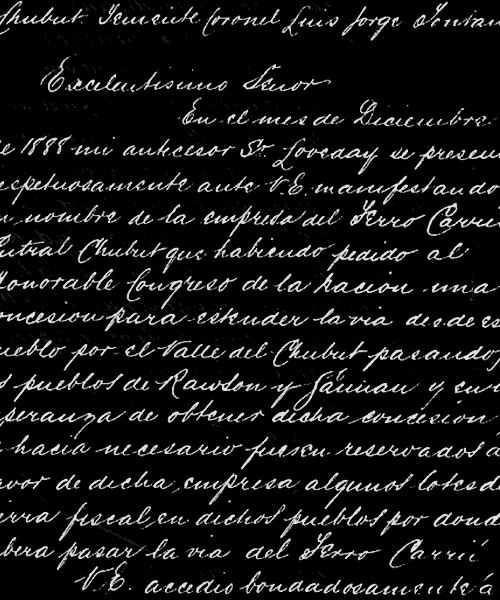 Chubut Teniente Coronel Luis Jorge Fontan
Excelentisimo Señor
En el mes de Diciembre
de 1888 mi antecesor Sr. Loveday se presen
respetuosamente ante V.E. manifestando
n nombre de la empresa del Ferro Carril
entral Chubut que habiendo pedido al
Honorable Congreso de la Nacion una
oncesion para estender la via desde es
ueblo por el Valle del Chubut pasando
s pueblos de Rawson y Gaiman y en
speranza de obtener dicha concesion
e hacia necesario fuesen reservados a
avor de dicha empresa algunos lotes de
ierra fiscal en dichos pueblos por dond
ebera pasar la via del Ferro Carril
V.E. accedio bondadosamente á